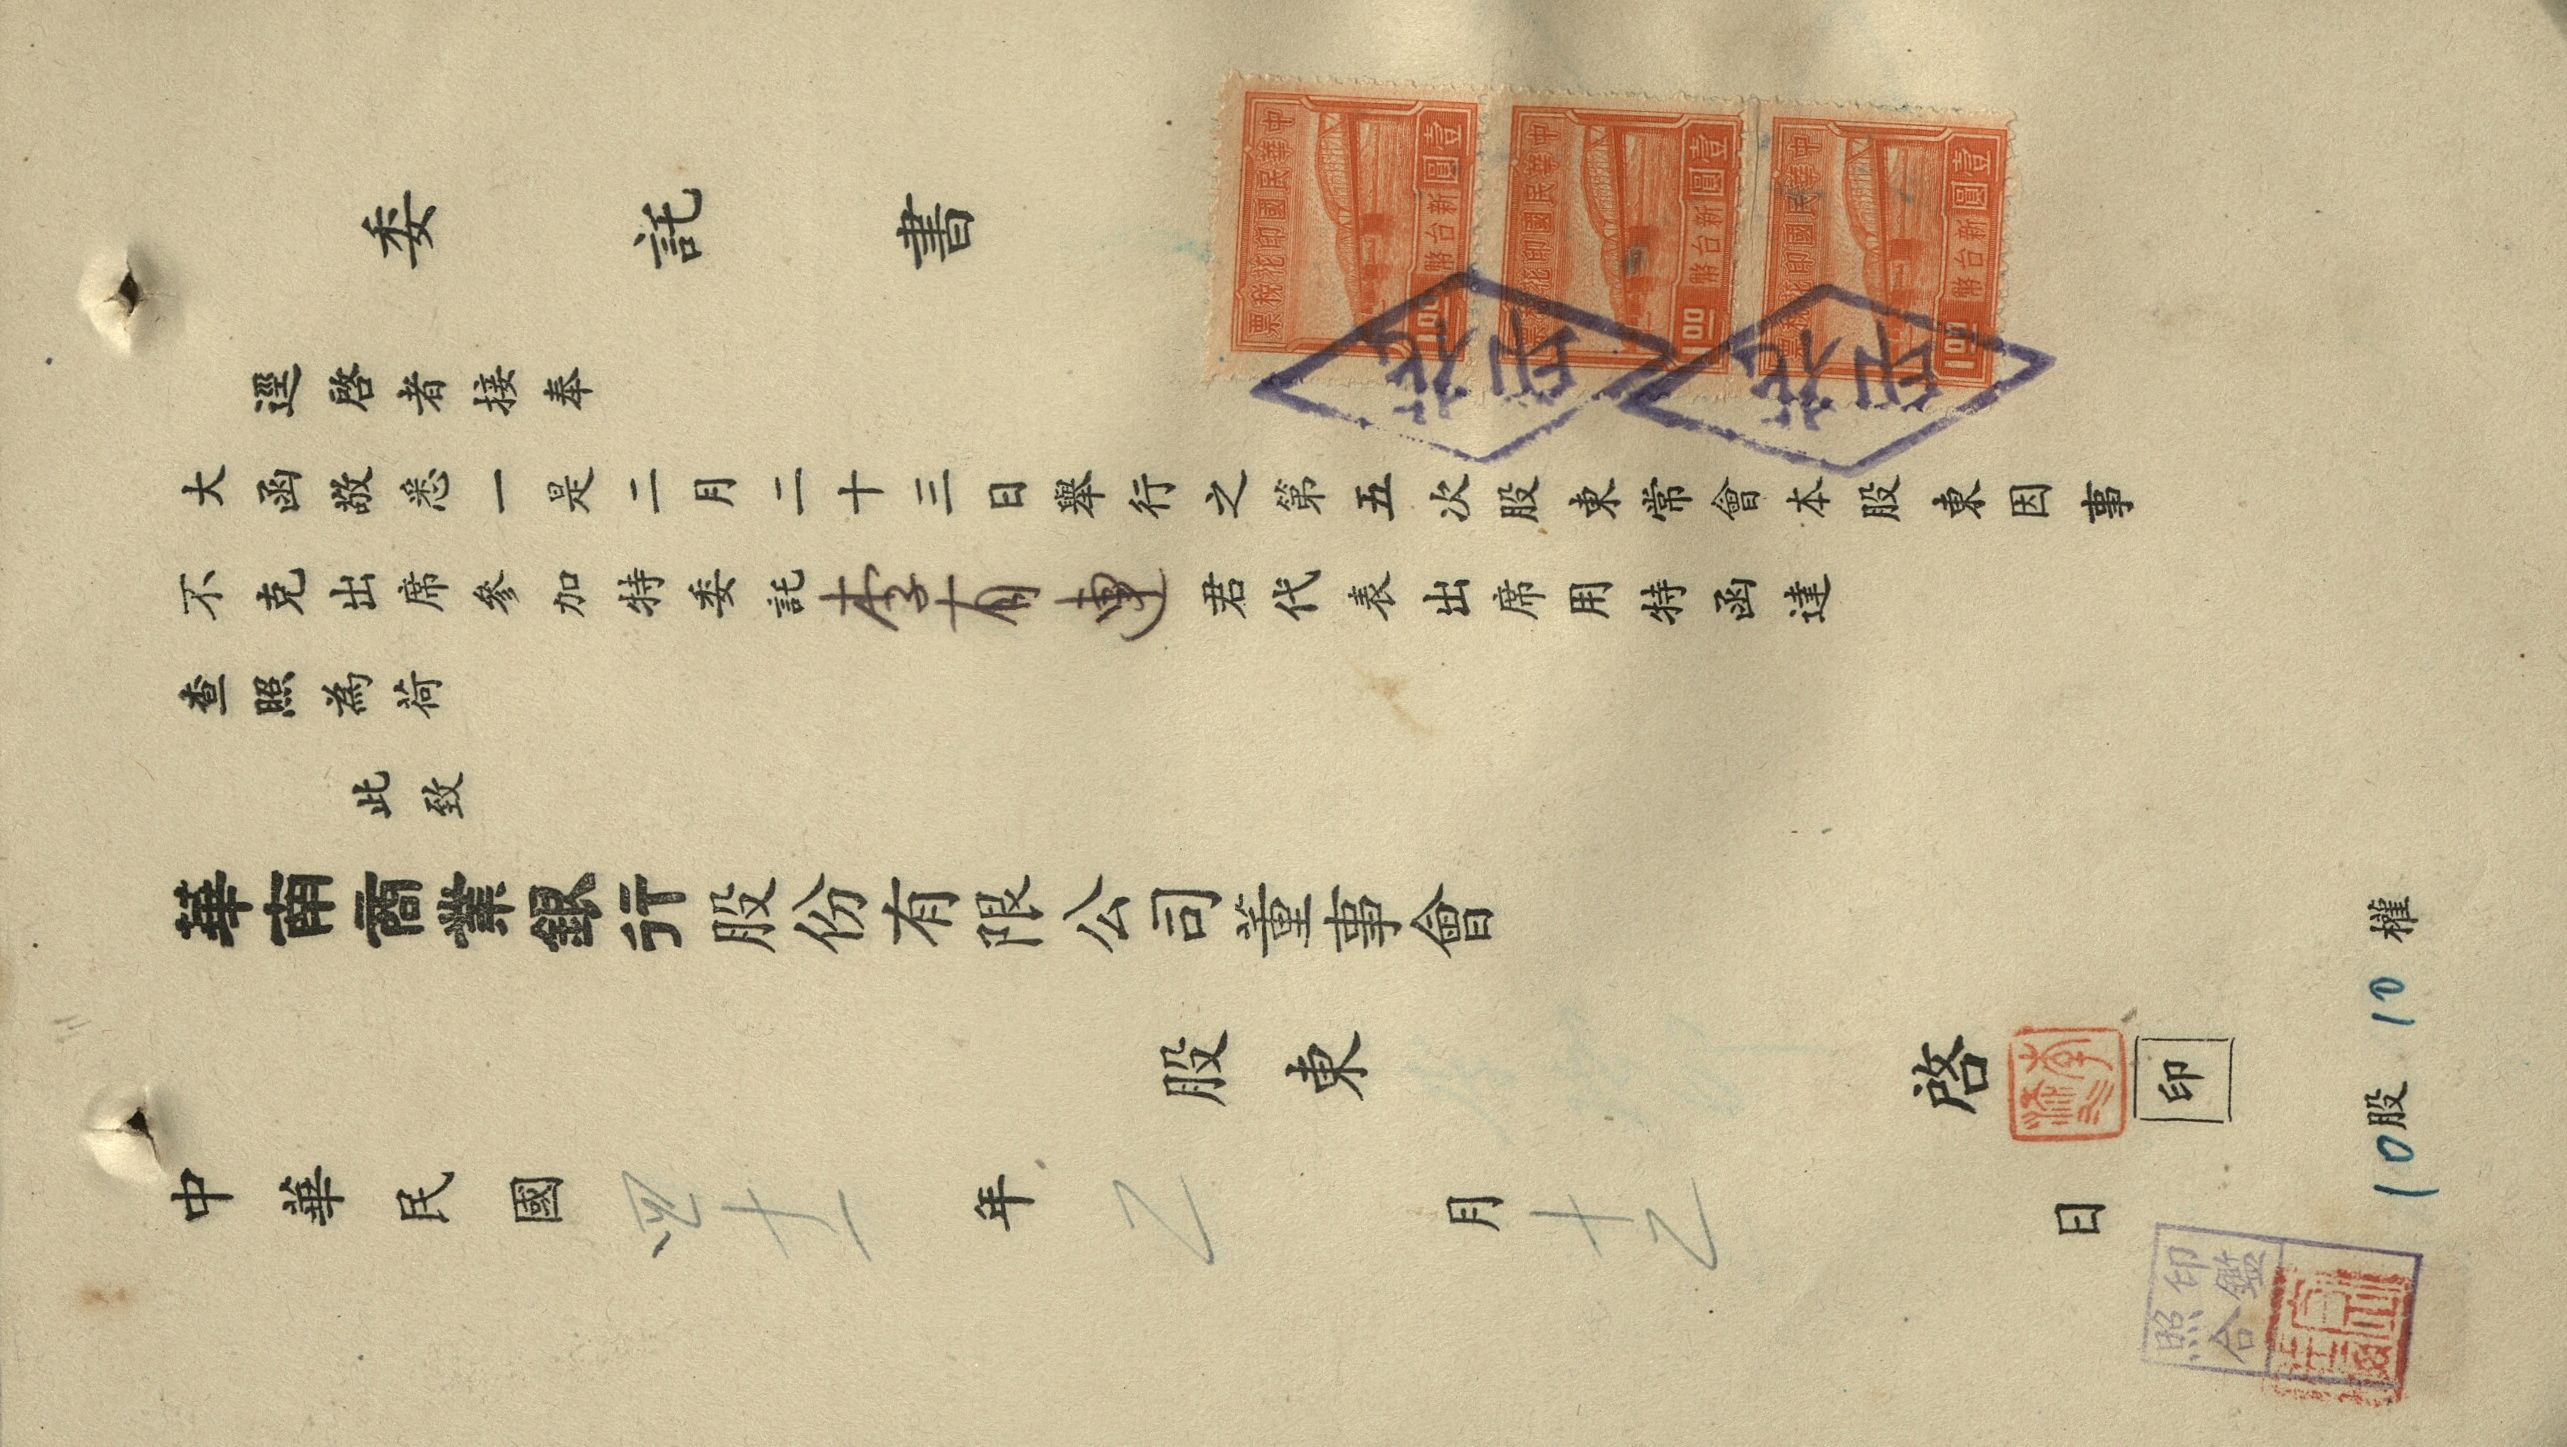 委託書
逕啓者接奉
大函敬悉一是二月二十三日舉行之第五次股東常會本股東因事
不克出席參加特委託李有連君代表出席用特函達
查照為荷
此致
華南商業銀行股份有限公司董事會
股東 啓 印
中華民國四十一年 2月十2日
10股 10權
中華民國印花稅票
壹圓
新台幣
1.00
中華民國印花稅票
壹圓
新台幣
1.00
中華民國印花稅票
壹圓
新台幣
1.00
印花
印花
印鑑
照合